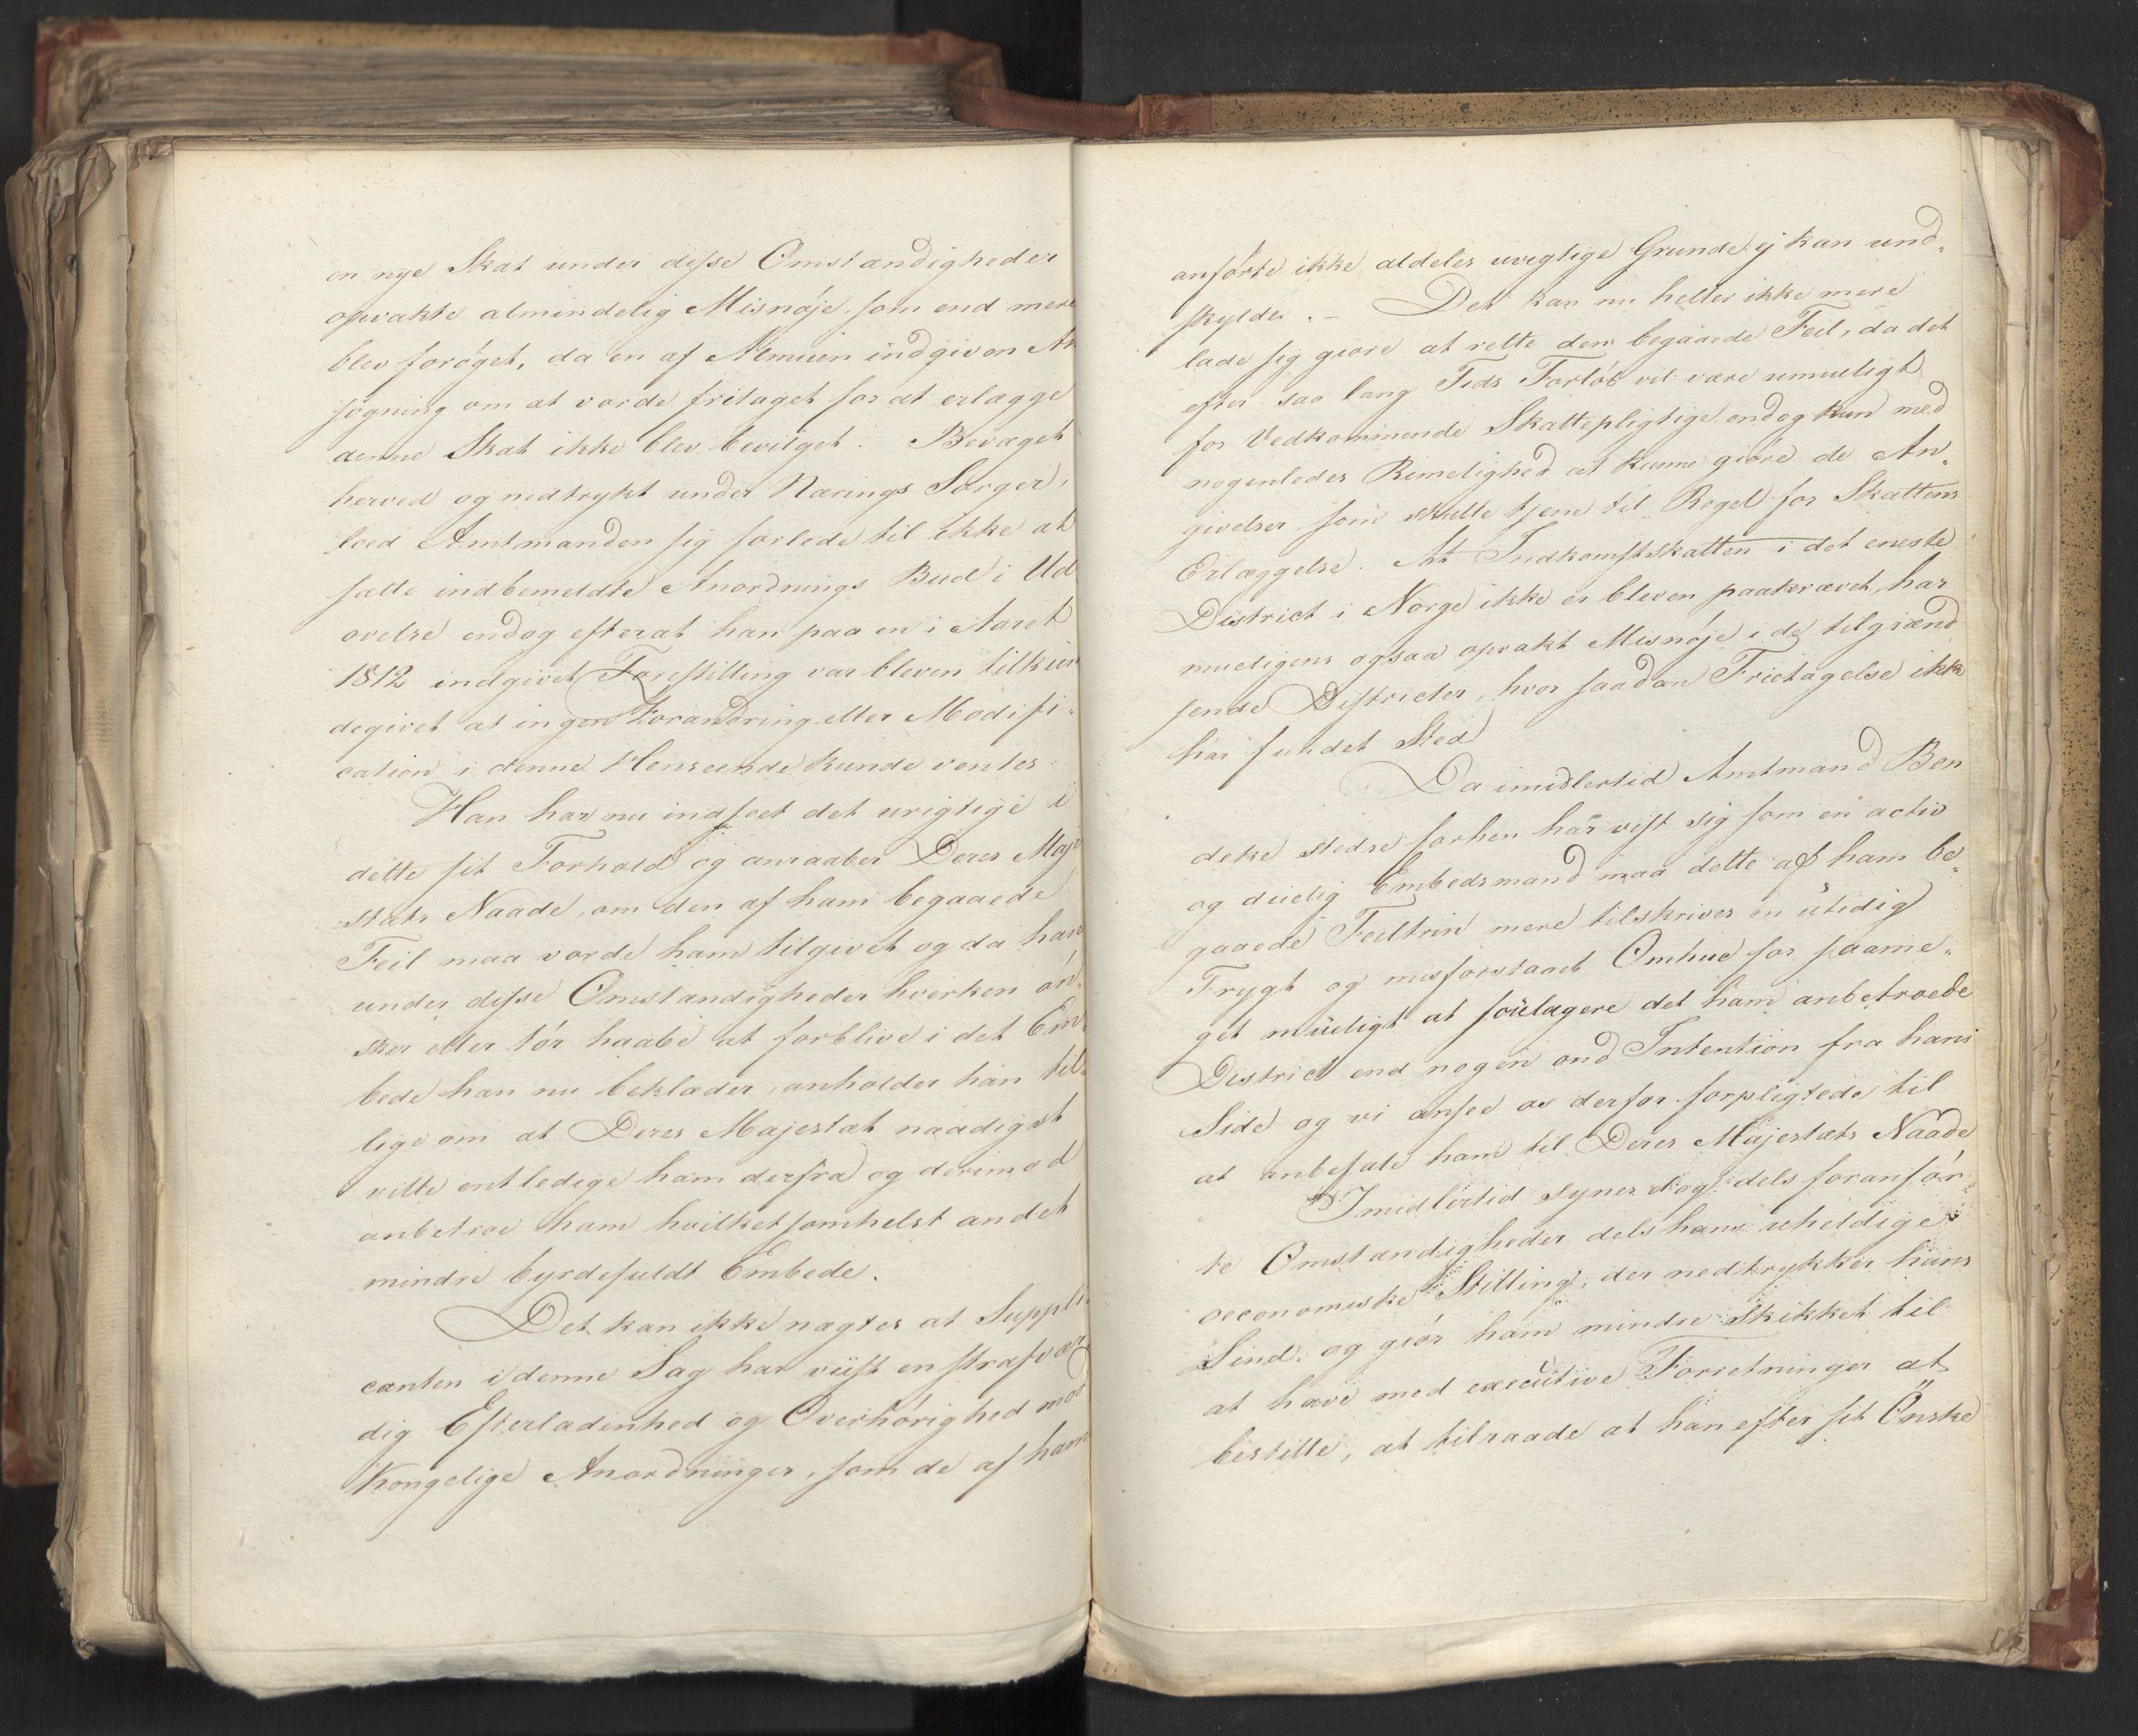 en nye Skat under disse Omstændigheder
opvakte almindelig Misnøje, som end mere
blev forøget, da en af Almuen indgiven An
søgning om at vorde fritaget for at erlægge
denne Skat ikke blev bevilget. Bevæget
herved og nedtrykt under Nærings Sorger,
lod Amtmanden sig forlede til ikke at
sætte indbemeldte Anordnings Bud i Ud
øvelse endog efterat han paa en i Aaret
1812 indgivet Forestilling var bleven tilkien
degivet at ingen Forandring eller Modifi-
cation i denne Henseende kunde ventes.
Han har nu indseet det urigtige i
dette sit Forhold og anraaber Deres Maje
stæts Naade, om den af ham begaaede
Feil maa vorde ham tilgivet og da han
under disse Omstændigheder hverken øn-
sker eller tør haabe at forblive i det Em-
bede han nu beklæder, anholder han til-
lige om at Deres Majestæt naadigst
vilde entledige ham derfra og derimod
anbetroe ham hvilketsomhelst andet
mindre byrdefuldt Embede.
Det kan ikke nægtes at Suppli-
canten i denne Sag har viist en strafvær
dig Efterladenhed og Overhørighed mod
Kongelige Anordninger, som de af ham
anførte ikke aldeles uvigtige Grunde ej kan und-
skylde. - Det kan nu heller ikke mere
lade sig giøre at rette den begaaede Feil, da det
efter saa lang Tids Forløb vil være umueligt
for Vedkommende Skattepligtige endog kun med
nogenledes Rimelighed at kunne giøre de An-
givelser som skulle tjene til Regel for Skattens
Erlæggelse. At Indkomstskatten i det eneste
District i Norge ikke er bleven paakrævet, har
mueligens ogsaa opvakt Misnøje i de tilgrænd
sende Districter, hvor saadan Frietagelse ikke
har fundet Sted
Da imidlertid Amtmand Ben
deke stedse forhen har vist sig som en activ
og duelig Embedsmand maa dette af ham be-
gaaede Feiltrin mere tilskrives en utidig
Frygt og misforstaaet Omhue for saame-
get mueligt at soulagere det ham anbetroede
District end nogen ond Intention fra hans
Side og vi ansee os derfor forpligtede til
at anbefale ham til Deres Majestæts Naade
Imidlertid synes dog dels foranfør-
te Omstændigheder dels hans uheldige
oeconomiske Stilling, der nedtrykker hans
Sind, og giør ham mindre skikket til
at have med executive Forretninger at
bestille, at tilraade at han efter sit Önske